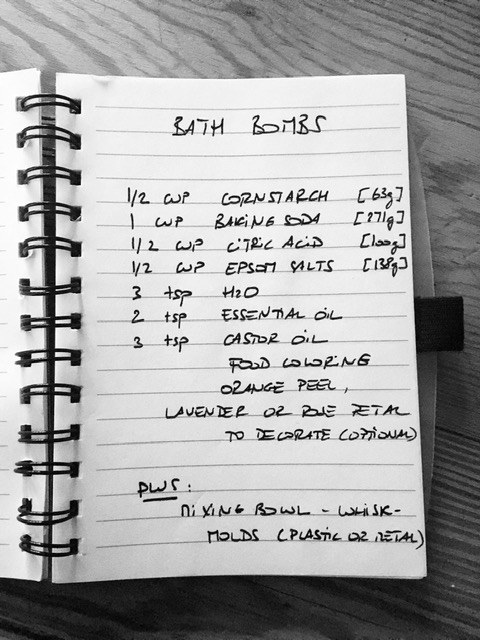 BATH BOMBS
1/2 CUP CORNSTARCH [63g]
1 CUP BAKING SODA [271g]
1/2 CUP CITRIC ACID [100g]
1/2 CUP EPSOM SALTS [138g]
3 tsp H2O
2 tsp ESSENTIAL OIL
3 tsp CASTOR OIL
FOOD COLORING
ORANGE PEEL,
LAVENDER OR ROSE PETAL
TO DECORATE (OPTIONAL)
PLUS:
MIXING BOWL - WHISK -
MOLDS (PLASTIC OR METAL)